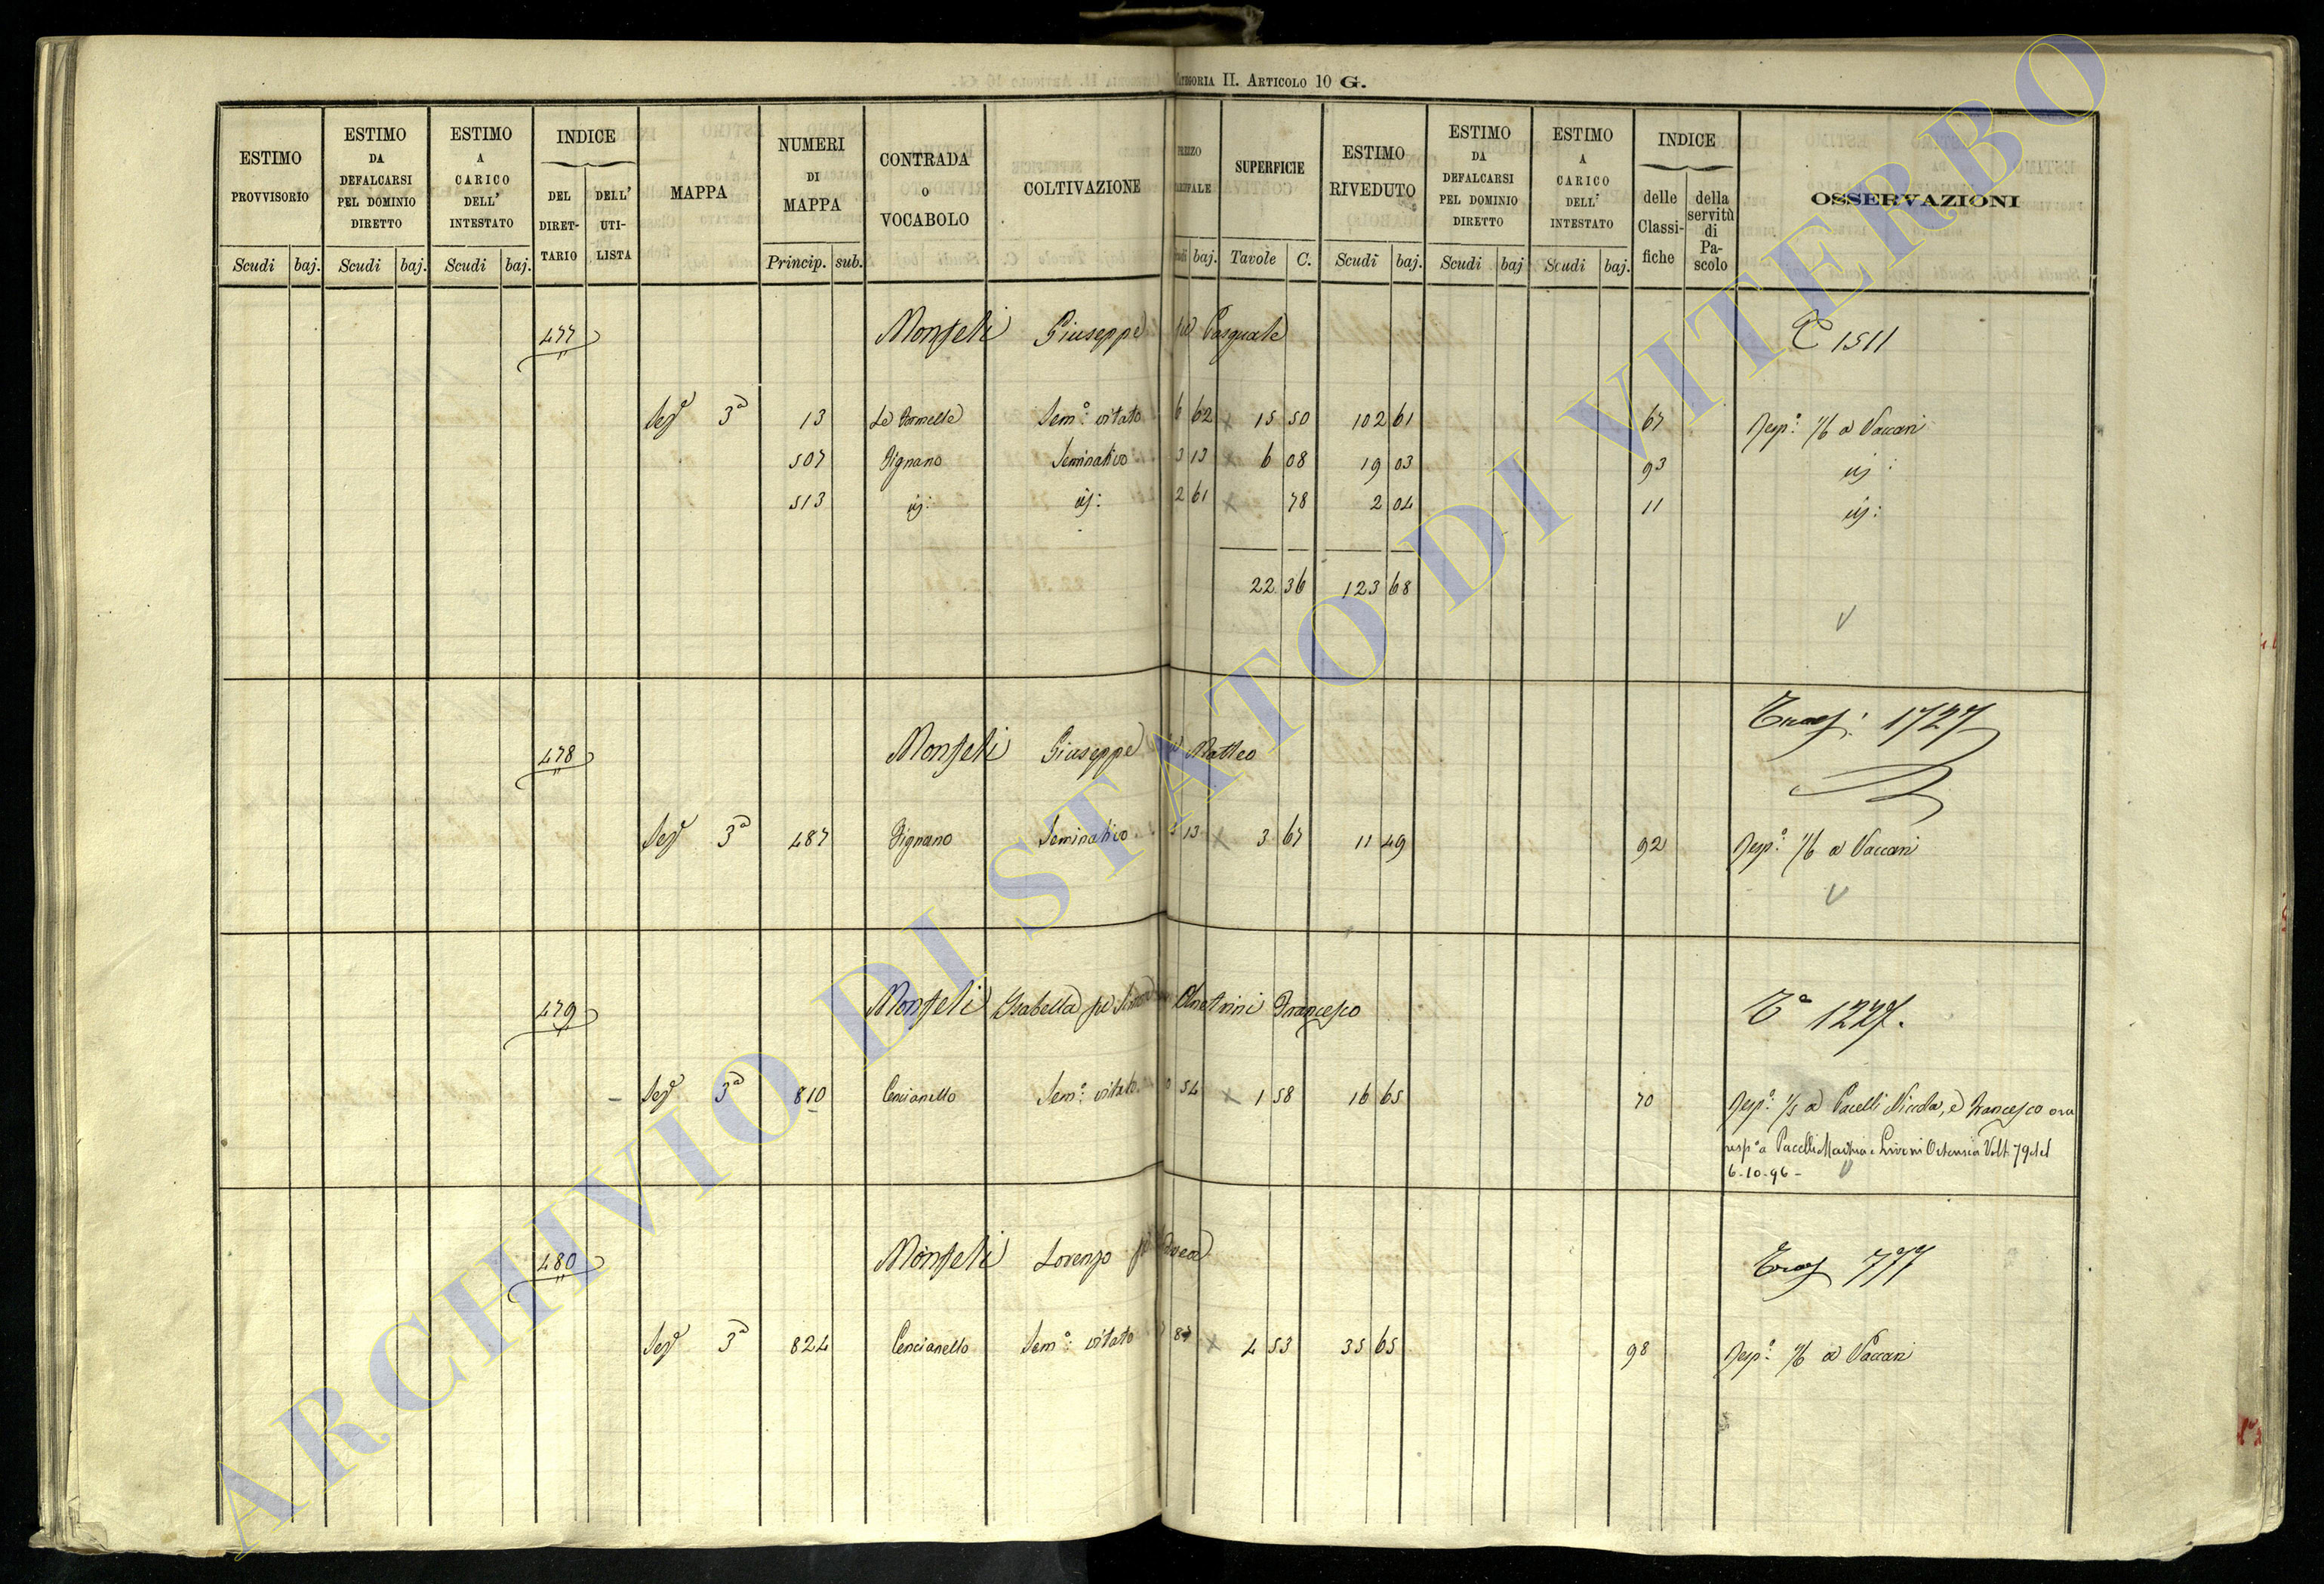 CATEGORIA II. ARTICOLO 10 G.
ESTIMO PROVVISORIO
Scudi baj.
ESTIMO DA DEFALCARSI PEL DOMINIO DIRETTO
Scudi baj.
ESTIMO A CARICO DELL' INTESTATO
Scudi baj.
INDICE
DEL DIRET-TARIO
DELL' UTI-LISTA
MAPPA
NUMERI DI MAPPA
Princip. sub.
CONTRADA O VOCABOLO
COLTIVAZIONE
baj.
SUPERFICIE
Tavole C.
ESTIMO RIVEDUTO
Scudi baj.
ESTIMO DA DEFALCARSI PEL DOMINIO DIRETTO
Scudi baj
ESTIMO A CARICO DELL' INTESTATO
Scudi baj.
INDICE
delle Classi-fiche
della servitù di Pa-scolo
OSSERVAZIONI
477 Monfeli Giuseppe Pasquale 1511
Sez 3ª 13 Le Semº: vitato 6 62 15 50 102 61 67 Respº: 1/6 a Vaccari
507 Pignano Seminativo 3 13 6 08 19 03 93 id:
513 id: id: 2 61 78 2 04 11 id:
22 36 123 68
Tras: 1727
478 Monfeli Giuseppe Matteo
Sez 3ª 487 Pignano Seminativo 3 13 3 67 11 49 92 Respº: 1/6 a Vaccari
479 Monfeli Isabella Francesco Tº 1227.
Sez 3ª 810 Cencianello Semº: vitato 54 1 58 16 65 70 Respº: 1/5 a Pacelli Niccola, e Francesco ora
respº a Pacelli e Ortensia Volt. 79 del
6-10-96-
480 Monfeli Lorenzo Tras 777
Sez 3ª 824 Cencianello Semº: vitato 87 4 53 35 65 98 Respº: 1/6 a Vaccari
ARCHIVIO DI STATO DI VITERBO